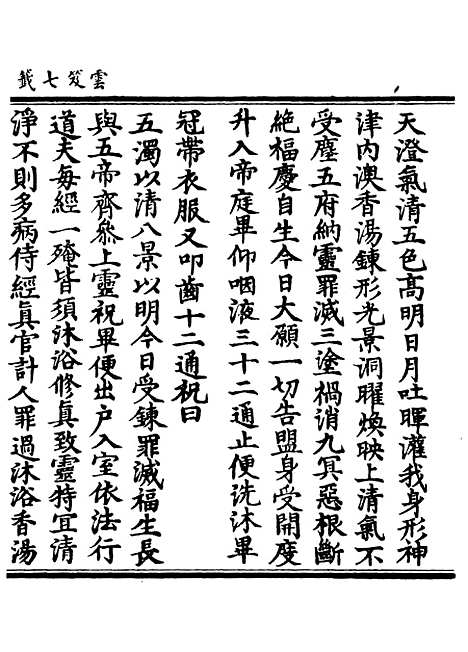 雲笈七籤
天澄氣清五色髙明日月吐暉灌我身形神
津内澳香湯鍊形光景洞曜煥映上清氣不
受塵五府納靈罪滅三塗禍消九冥惡根斷
絶福慶自生今日大願一切告盟身受開度
升入帝庭畢仰咽液三十二通止便洗沐畢
冠帶衣服又叩齒十二通祝曰
五濁以清八景以明今日受鍊罪滅福生長
與五帝齊叅上靈祝畢便出户入室依法行
道夫每經一殗皆須沐浴修真致靈特宜清
淨不則多病侍經真官計人罪過沐浴香湯